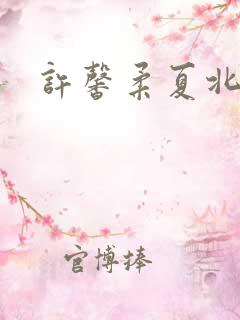 許馨柔夏北
官博捧